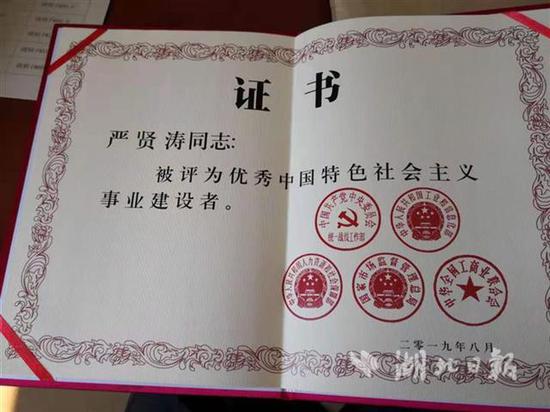 证书
严贤涛同志:
被评为优秀中国特色社会主义
事业建设者。
中国共产党中央委员会
统一战线工作部
中华人民共和国工业和信息化部
中华人民共和国人力资源和社会保障部
国家市场监督管理总局
中华全国工商业联合会
二〇一九年八月
湖北日报